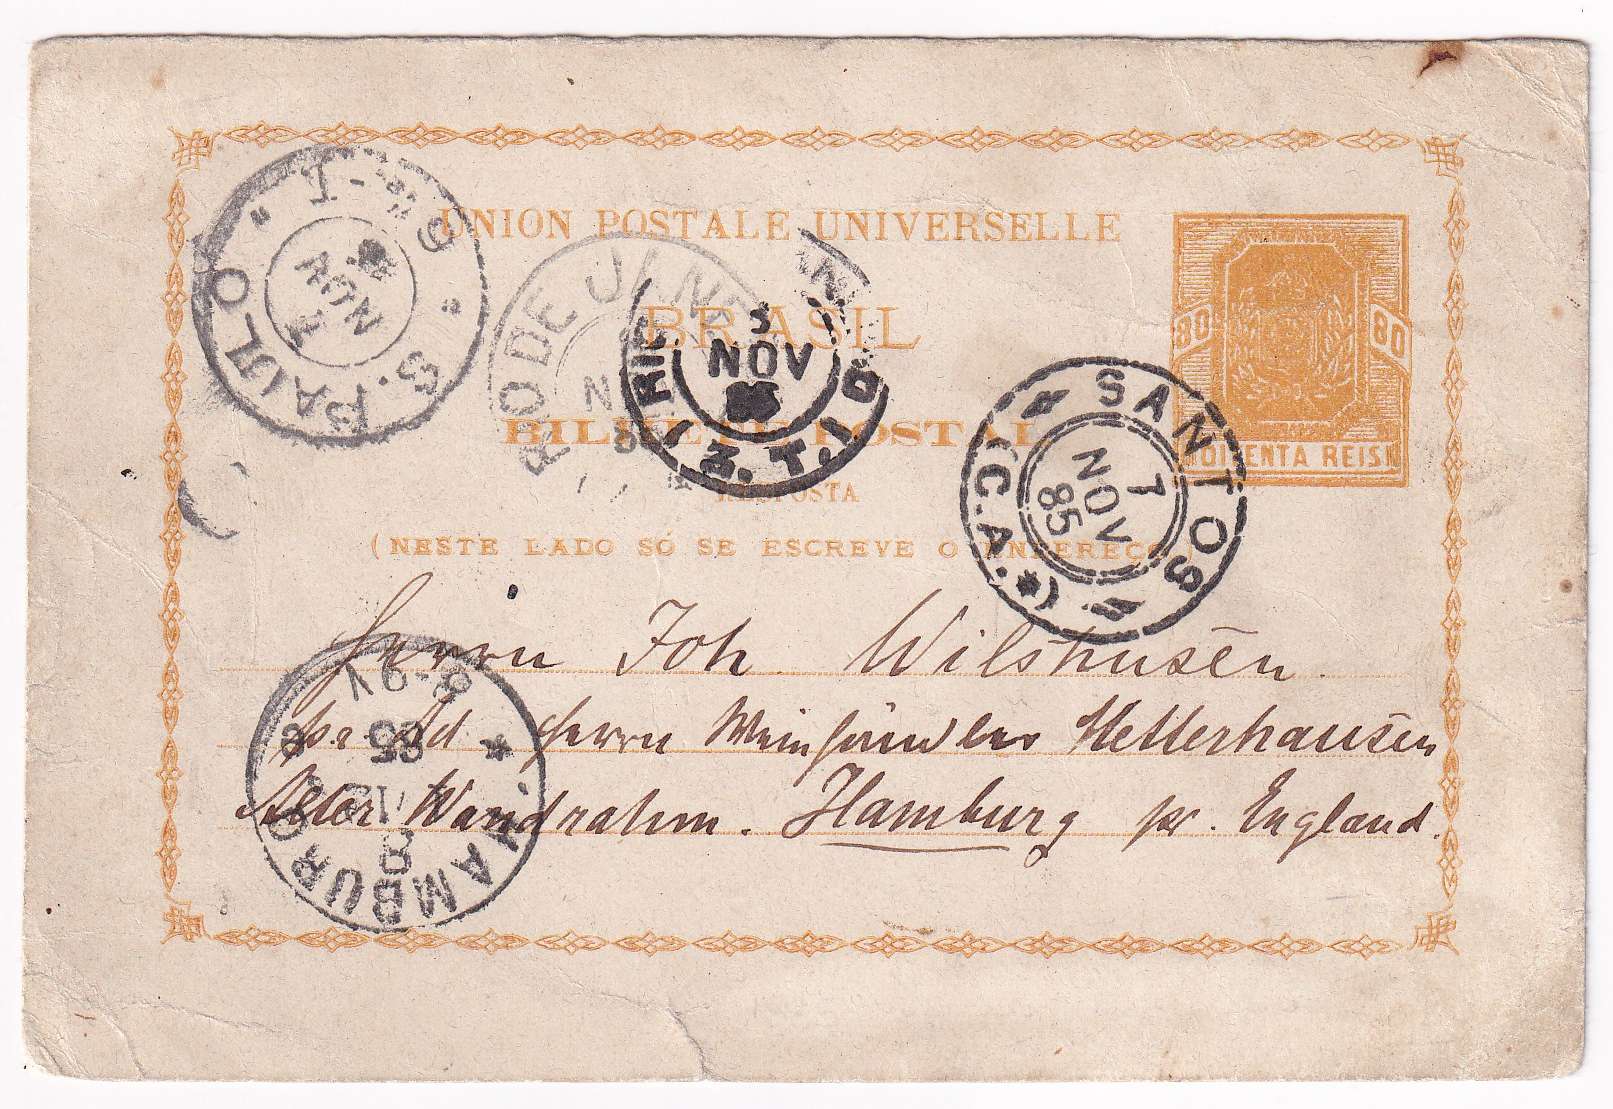 UNION POSTALE UNIVERSELLE
BRASIL
BILHETE POSTAL
RESPOSTA
(NESTE LADO SÓ SE ESCREVE O ENDEREÇO)
80 80
OITENTA REIS
S. PAULO
1
NOV
RIO DE JANE
N
8
3
NOV
85
SANTOS
1
NOV
85
(C.A.*)
HAMBURG
8
12
85
8-9V
Herrn Joh Wilshusen
Herrn Weinhändler Hellerhausen
Alter Wandrahm. Hamburg pr. England.